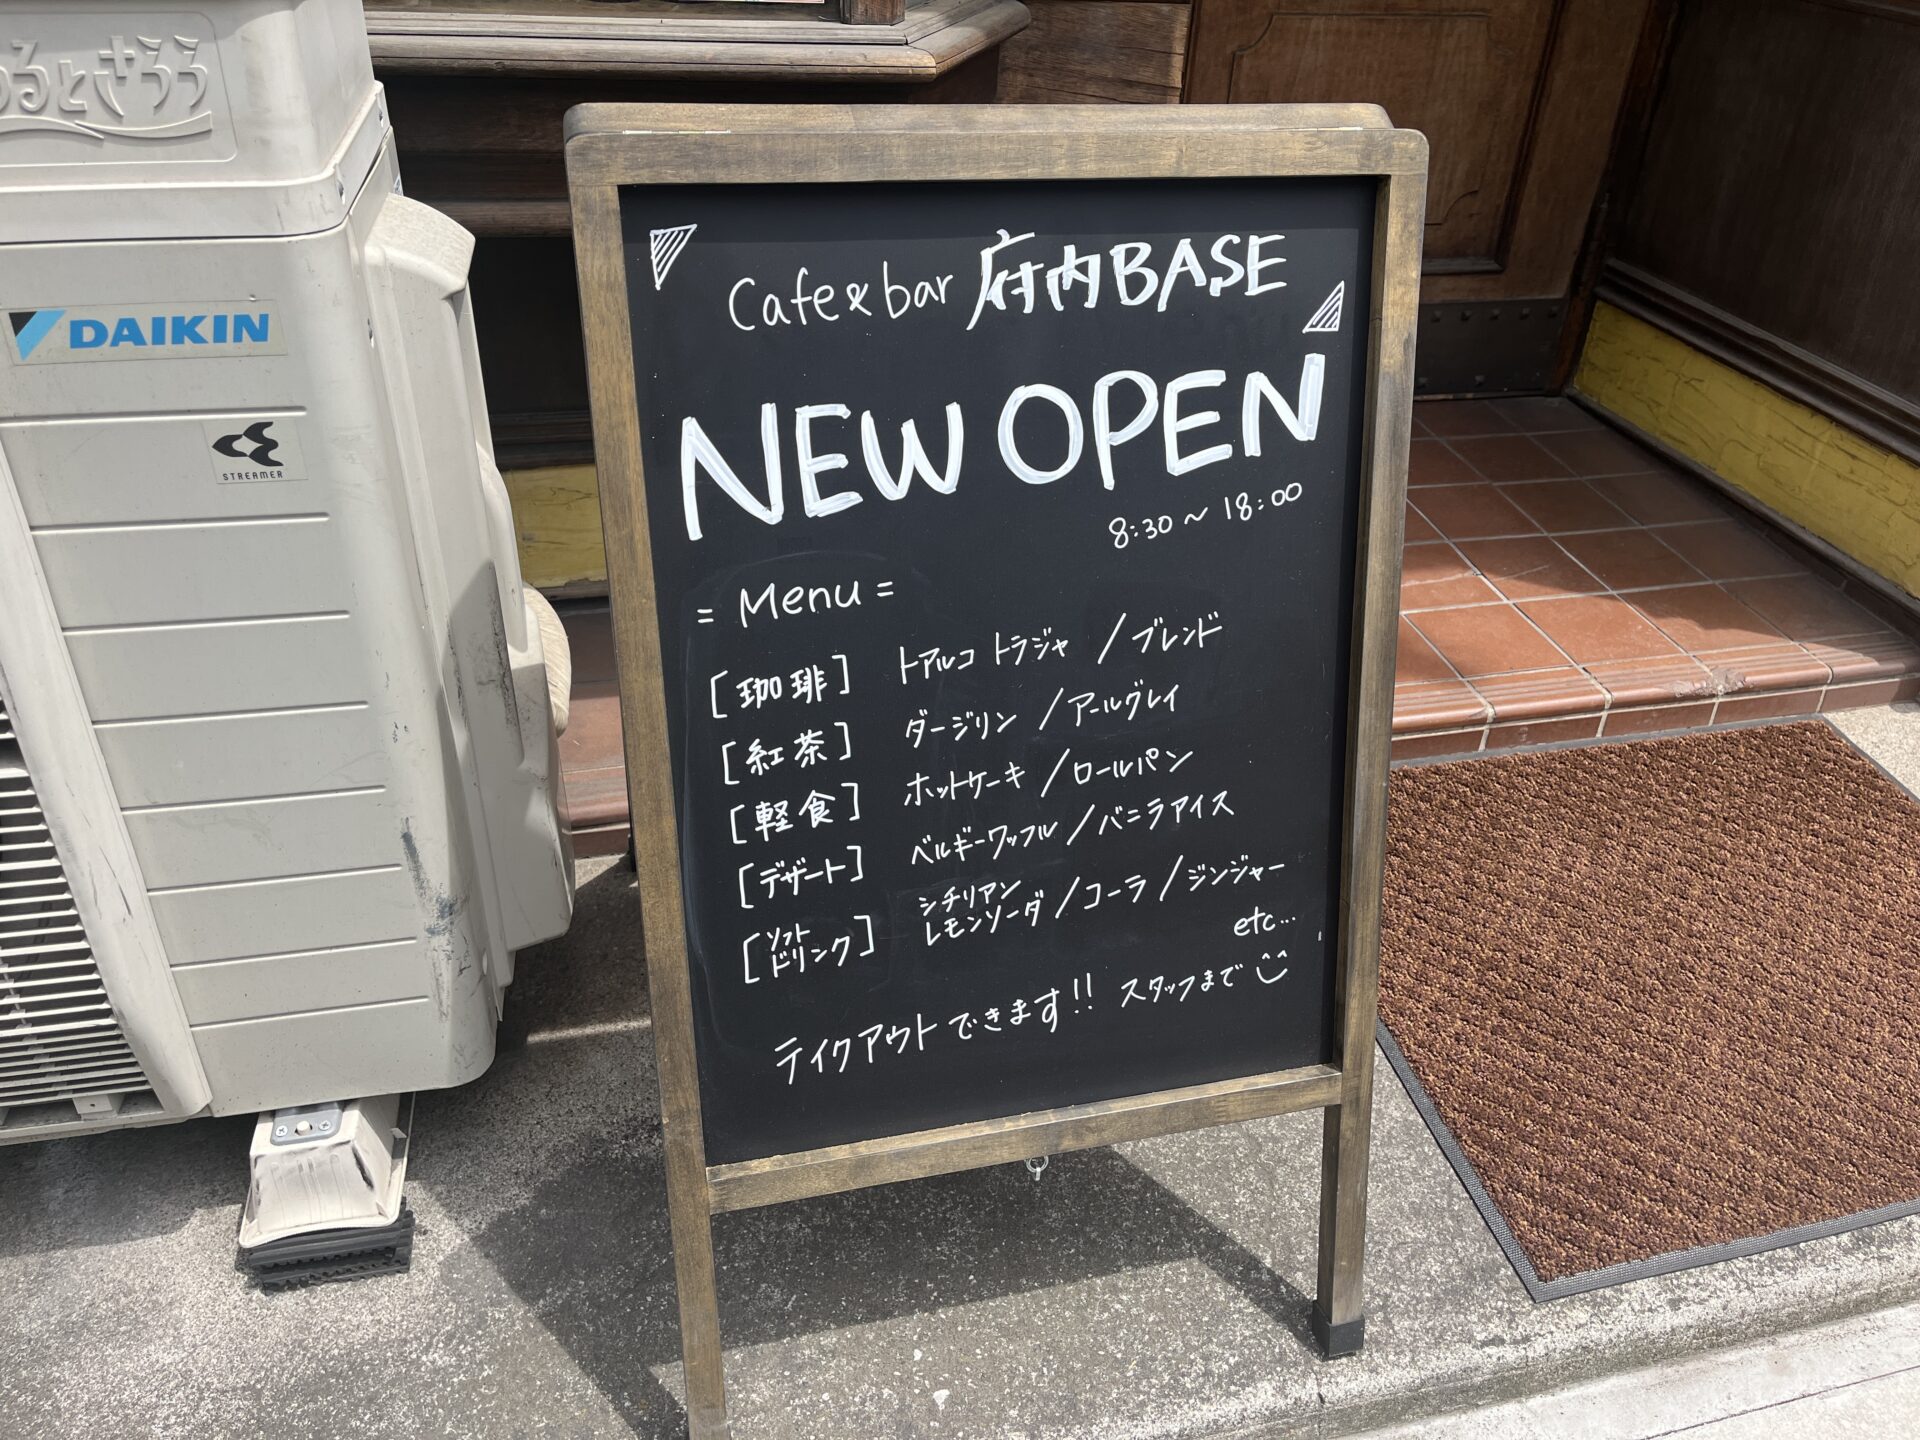 うるとさらら
DAIKIN
STREAMER
Cafe & bar 府内BASE
NEW OPEN
8:30 ~ 18:00
= Menu =
[珈琲] トアルコ トラジャ / ブレンド
[紅茶] ダージリン / アールグレイ
[軽食] ホットケーキ / ロールパン
[デザート] ベルギーワッフル / バニラアイス
[ソフトドリンク] シチリアンレモンソーダ / コーラ / ジンジャー
etc...
テイクアウトできます!! スタッフまで